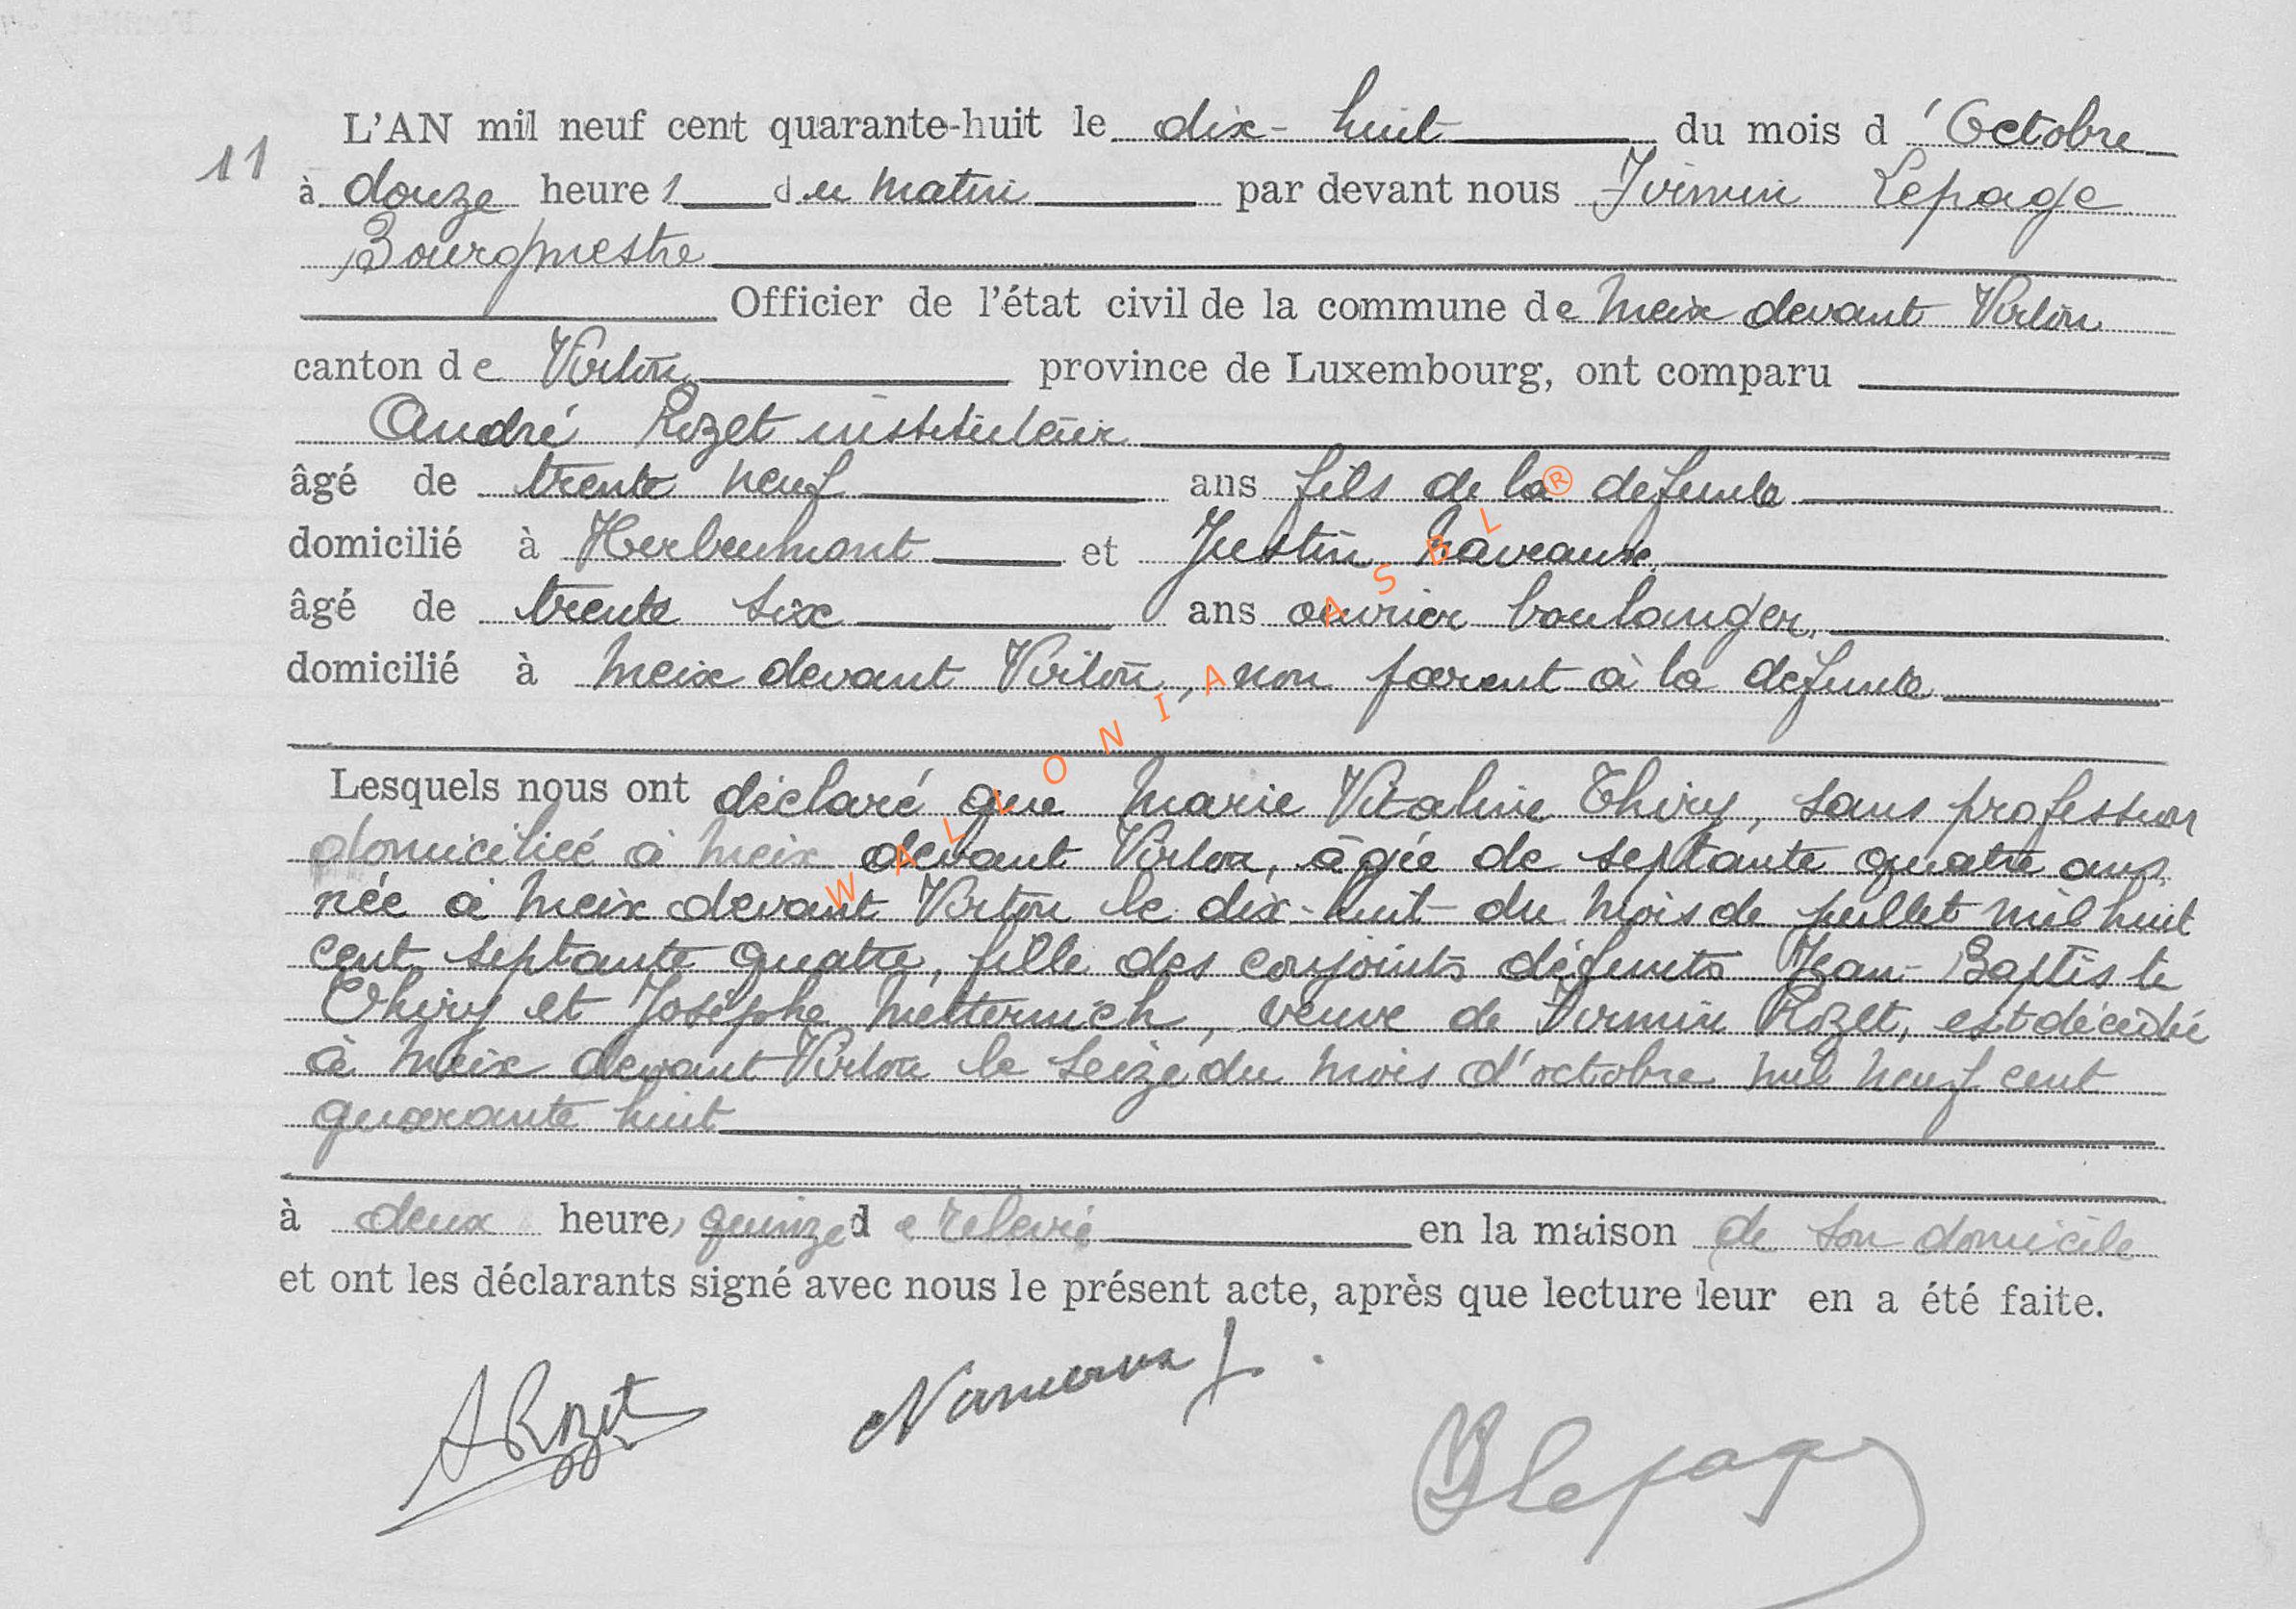 11
L'AN mil neuf cent quarante-huit le dix-huit du mois d'Octobre
à douze heures du matin par devant nous Firmin Lepage
Bourgmestre
Officier de l'état civil de la commune de Meix devant Virton
canton de Virton province de Luxembourg, ont comparu
André Rozet instituteur
âgé de trente neuf ans fils de la défunte
domicilié à Herbeumont et Justin
âgé de trente six ans ouvrier boulanger,
domicilié à Meix devant Virton, non parent à la défunte
Lesquels nous ont déclaré que Marie Vitaline Thiry, sans profession
domiciliée à Meix devant Virton, âgée de septante quatre ans,
née à Meix devant Virton le dix-huit du mois de juillet mil huit
cent septante quatre, fille des conjoints défunts Jean-Baptiste
Thiry et Josèphe Metternich, veuve de Firmin Rozet, est décédée
à Meix devant Virton le seize du mois d'octobre mil neuf cent
quarante huit
à deux heures quinze de relevée en la maison de son domicile
et ont les déclarants signé avec nous le présent acte, après que lecture leur en a été faite.
ARozet
Lepage
WALLONIA ASBL ®